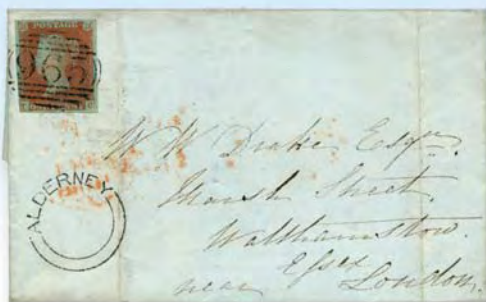 POSTAGE
965
ALDERNEY
W W Drake Esqre.
Marsh Street,
Walthamstow.
Essex
near London,